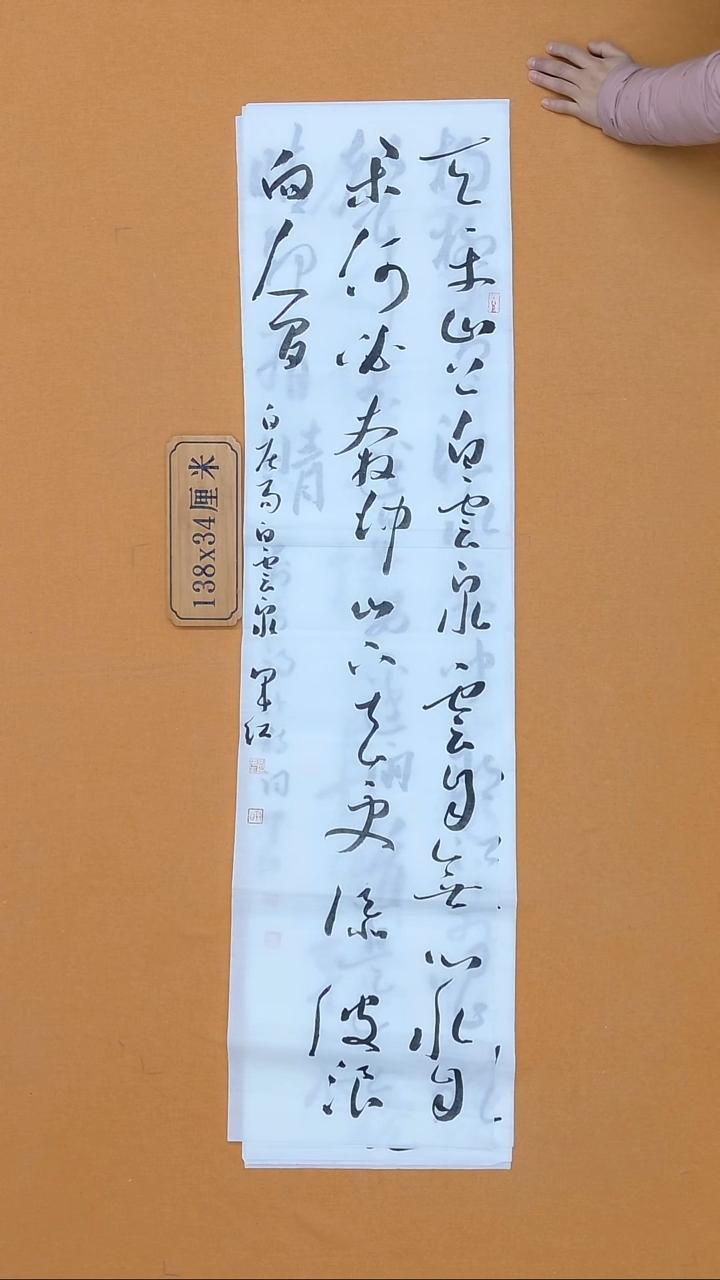 天平山上白雲泉雲自無心水自
閑何必奔冲山下去更添波浪
向人間
白居易白雲泉
138x34厘米